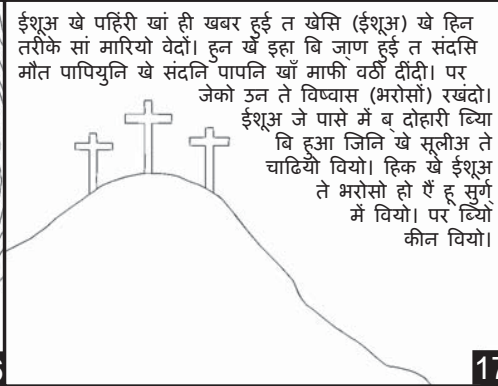 ईशूअ खे पहिंरी खां ही खबर हुई त खेसि (ईशूअ) खे हिन
तरीके सां मारियो वेदों। हुन खे इहा बि जा॒ण हुई त संदसि
मौत पापियुनि खे संदनि पापनि खाँ माफी वठी दींदी। पर
जेको उन ते विष्वास (भरोसों) रखंदो।
ईशूअ जे पासे में ब॒ दोहारी ब्यिा
बि हुआ जिनि खे सूलीअ ते
चाढियो वियो। हिक खे ईशूअ
ते भरोसो हो ऐं हू सुर्ग॒
में वियो। पर ब्यिो
कीन वियो।
17